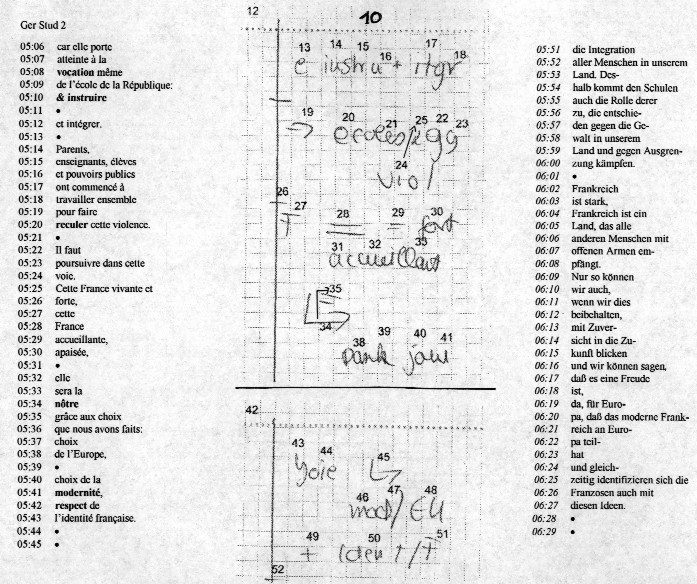 Ger Stud 2
05:06 car elle porte
05:07 atteinte à la
05:08 vocation même
05:09 de l'école de la République:
05:10 & instruire
05:11 •
05:12 et intégrer.
05:13 •
05:14 Parents,
05:15 enseignants, élèves
05:16 et pouvoirs publics
05:17 ont commencé à
05:18 travailler ensemble
05:19 pour faire
05:20 reculer cette violence.
05:21 •
05:22 Il faut
05:23 poursuivre dans cette
05:24 voie.
05:25 Cette France vivante et
05:26 forte,
05:27 cette
05:28 France
05:29 accueillante,
05:30 apaisée,
05:31 •
05:32 elle
05:33 sera la
05:34 nôtre
05:35 grâce aux choix
05:36 que nous avons faits:
05:37 choix
05:38 de l'Europe,
05:39 •
05:40 choix de la
05:41 modernité,
05:42 respect de
05:43 l'identité française.
05:44 •
05:45 •
12
10
13 14 15 16 17 18
19 20 21 25 22 23
écoles
24
viol
26
27 28 29 30
+ = = fort
31 32 33
accueillant
35
34
38 39 40 41
42
43 44 45
joie
46 47 48
mod/ EU
49 50 51
+ Ident / F
52
05:51 die Integration
05:52 aller Menschen in unserem
05:53 Land. Des-
05:54 halb kommt den Schulen
05:55 auch die Rolle derer
05:56 zu, die entschie-
05:57 den gegen die Ge-
05:58 walt in unserem
05:59 Land und gegen Ausgren-
06:00 zung kämpfen.
06:01 •
06:02 Frankreich
06:03 ist stark,
06:04 Frankreich ist ein
06:05 Land, das alle
06:06 anderen Menschen mit
06:07 offenen Armen em-
06:08 pfängt.
06:09 Nur so können
06:10 wir auch,
06:11 wenn wir dies
06:12 beibehalten,
06:13 mit Zuver-
06:14 sicht in die Zu-
06:15 kunft blicken
06:16 und wir können sagen,
06:17 daß es eine Freude
06:18 ist,
06:19 da, für Euro-
06:20 pa, daß das moderne Frank-
06:21 reich an Euro-
06:22 pa teil-
06:23 hat
06:24 und gleich-
06:25 zeitig identifizieren sich die
06:26 Franzosen auch mit
06:27 diesen Ideen.
06:28 •
06:29 •